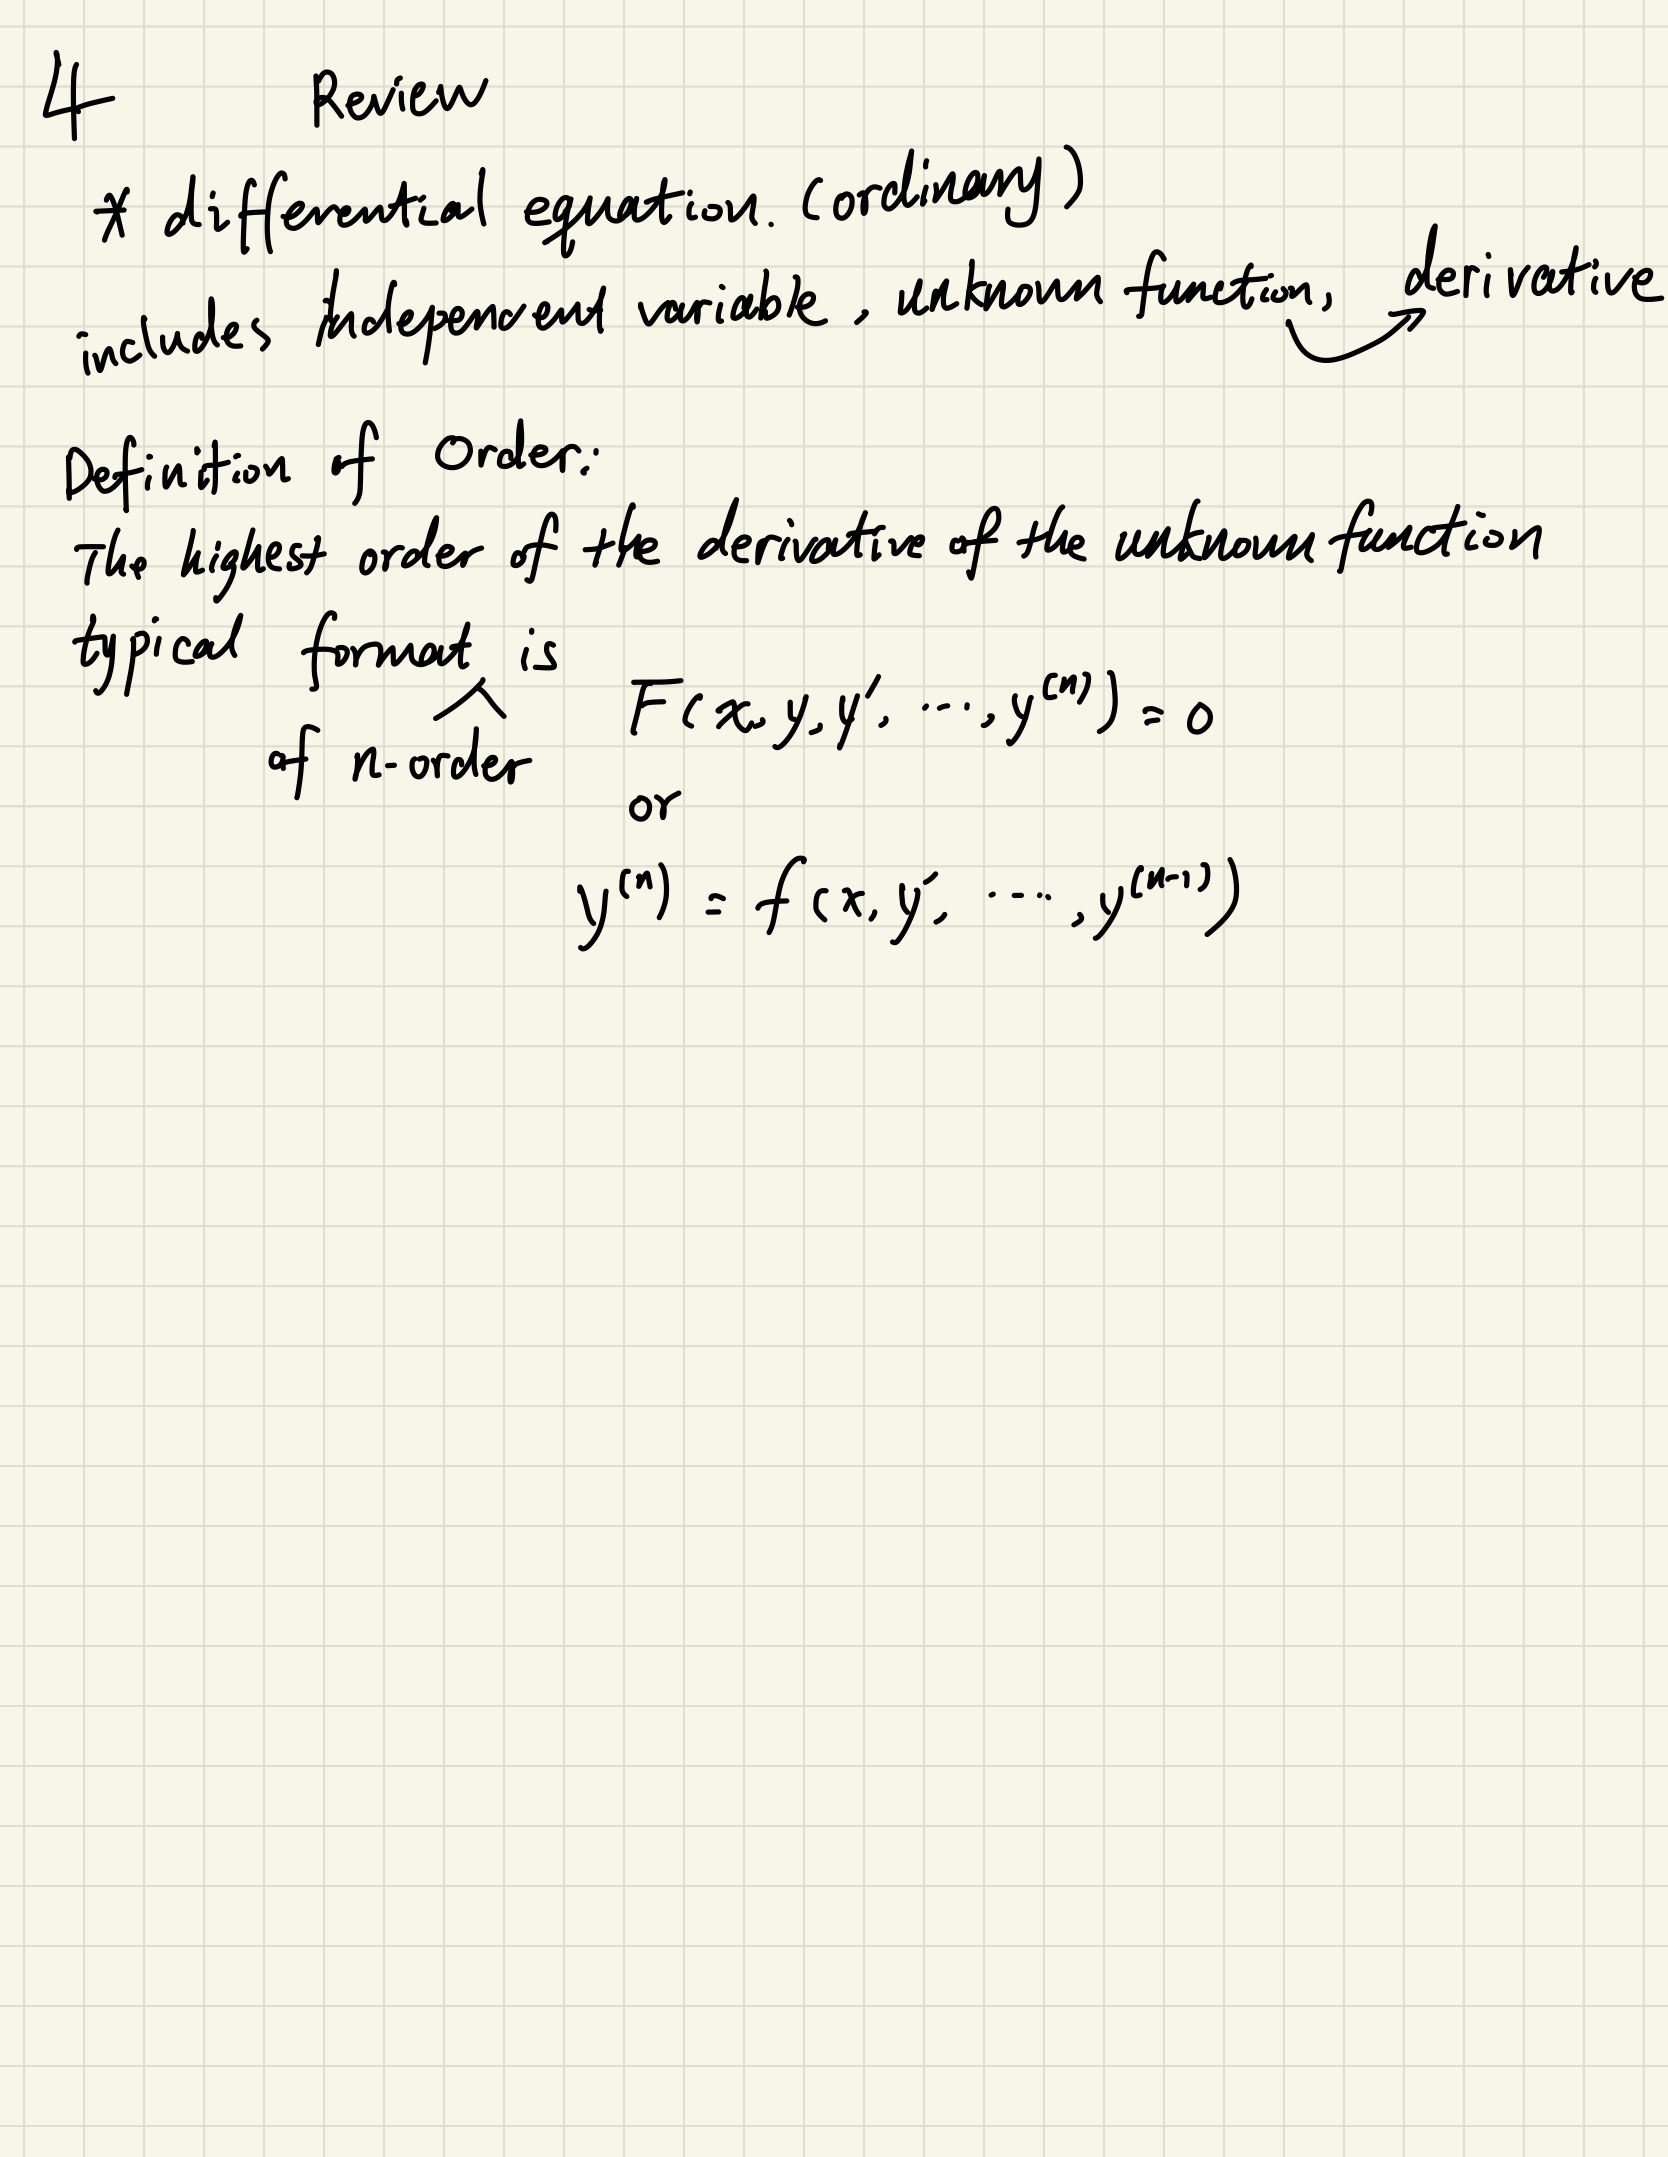 4 Review
* differential equation. (ordinary)
includes independent variable, unknown function, derivative
Definition of Order:
The highest order of the derivative of the unknown function
typical format is
of n-order
F(x, y, y', ..., y^(n)) = 0
or
y^(n) = f(x, y', ...., y^(n-1))